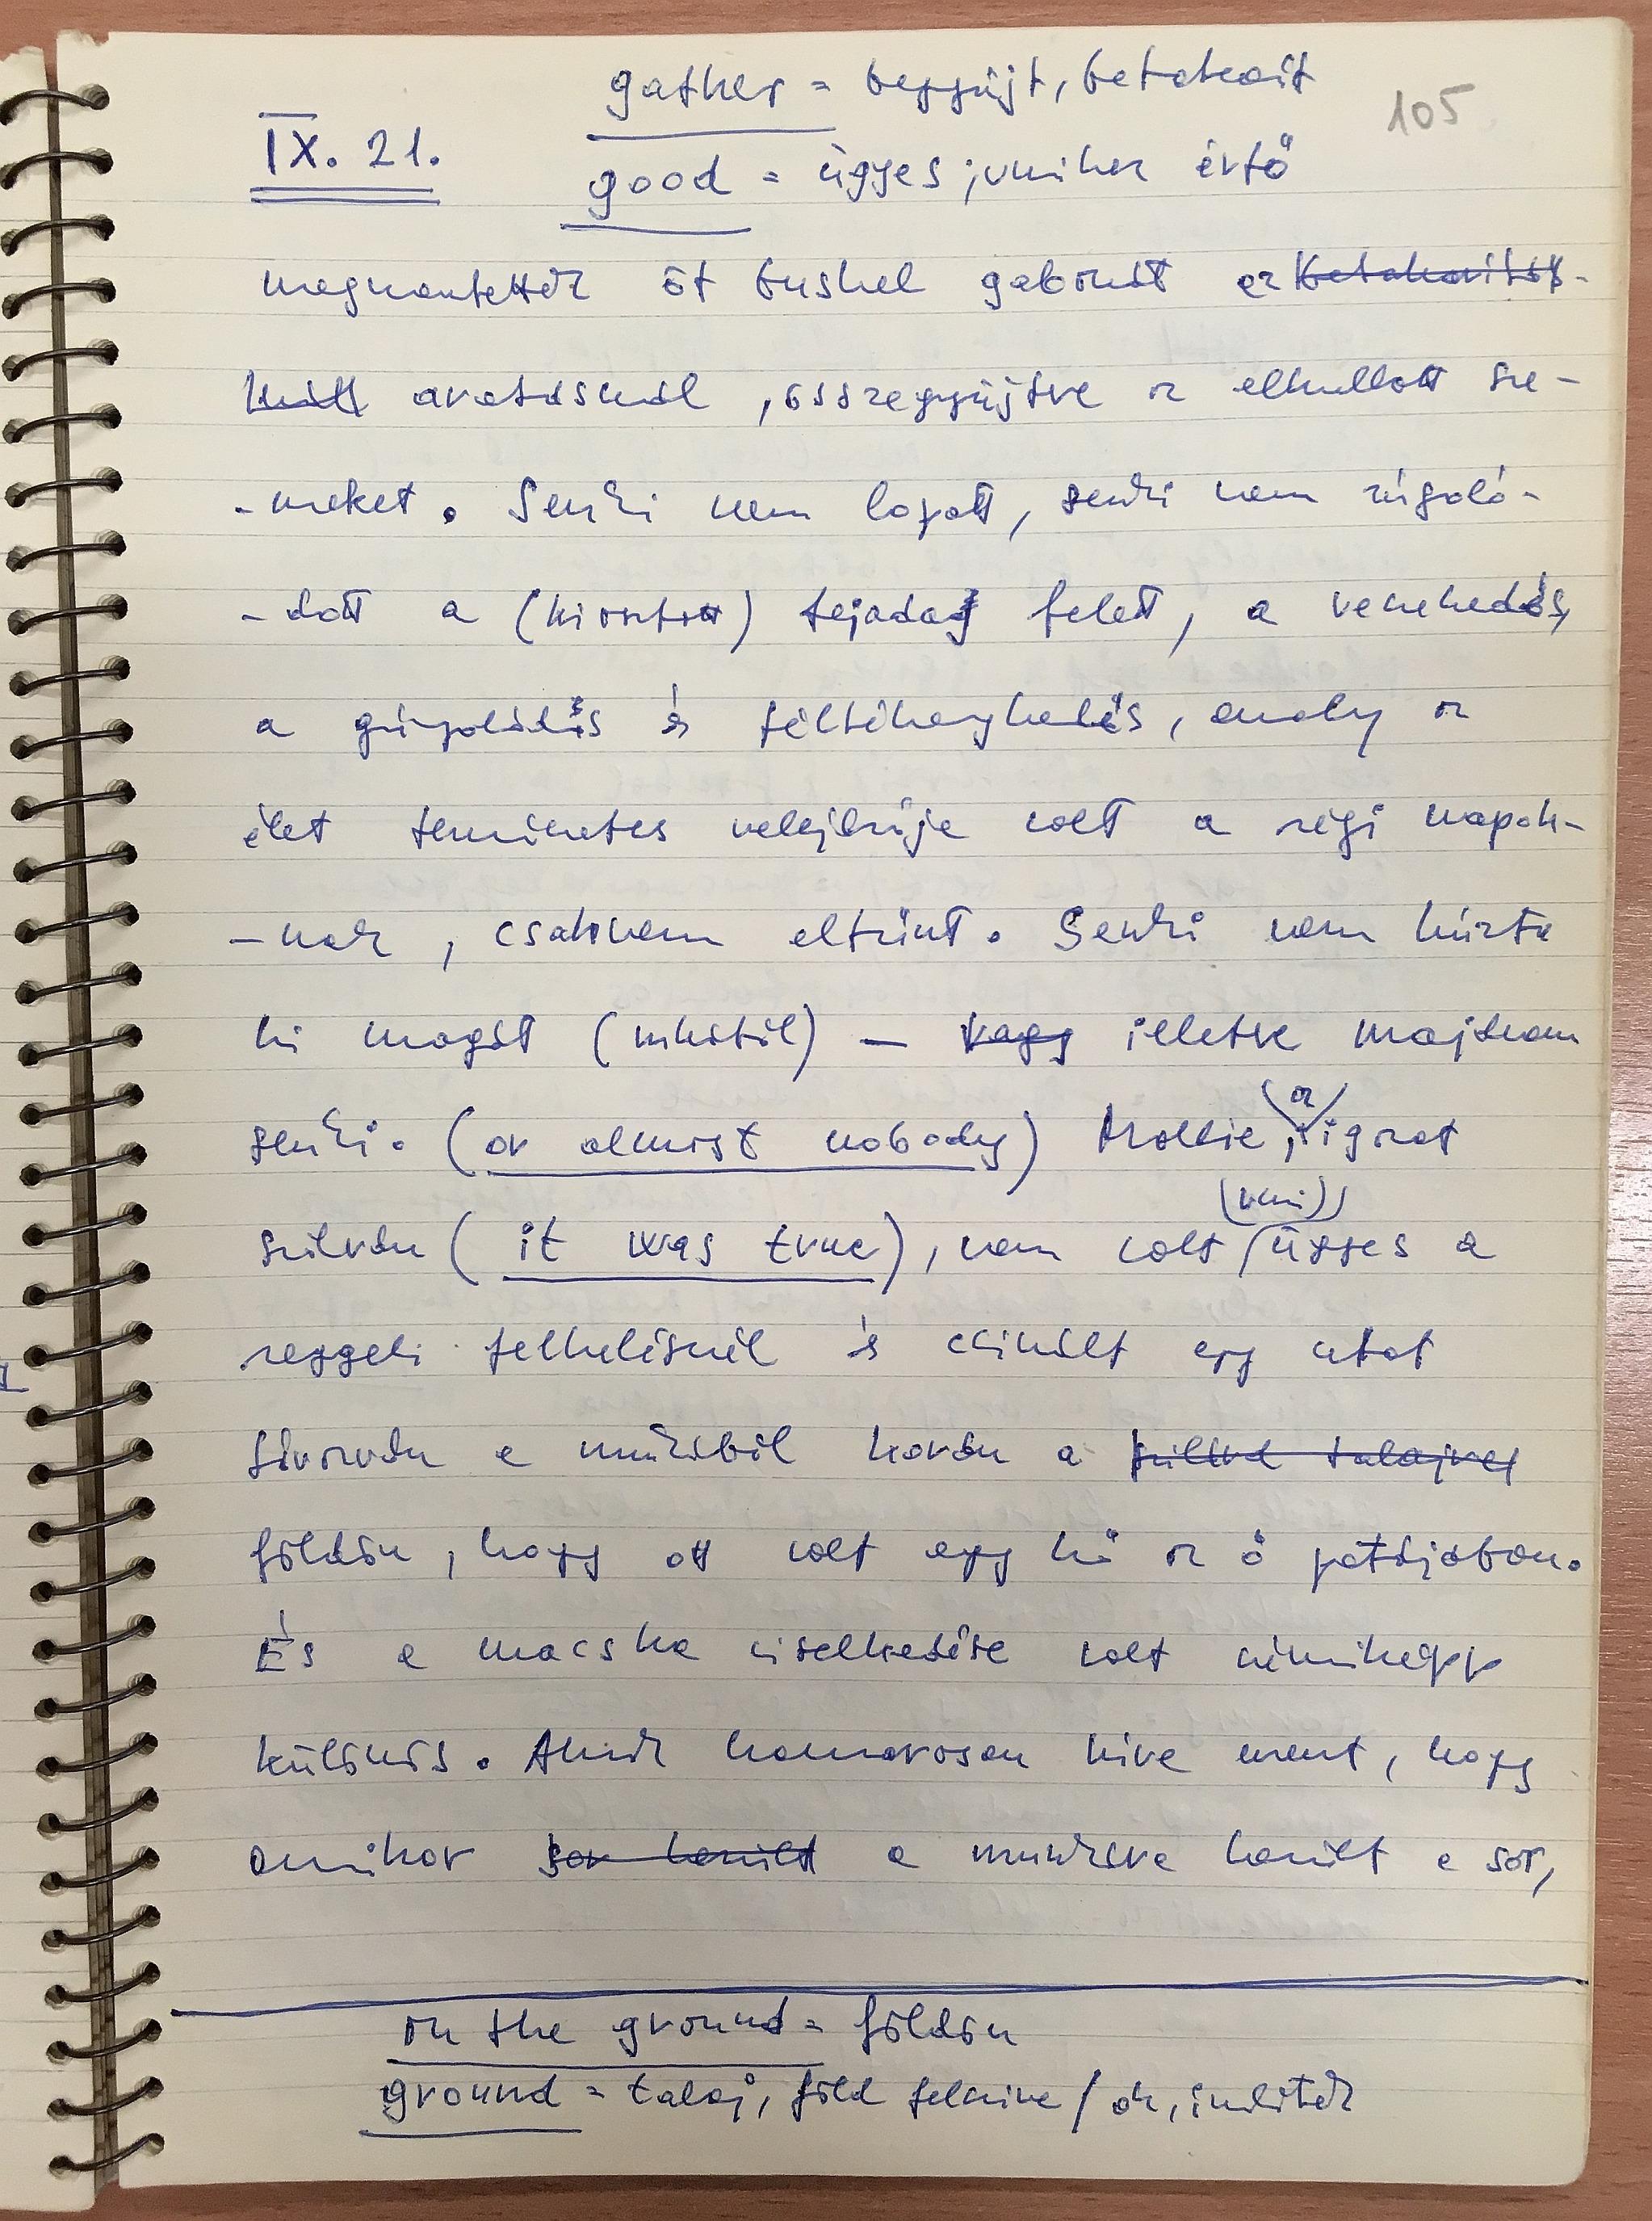 gather = begyűjt, betakarít
105
IX. 21.
good = ügyes; vmihez értő
megmentettek öt bushel gabonát az betakarítás-
nál aratásnál, összegyűjtve az elhullott sze-
-meket. Senki nem lopott, senki nem zúgoló-
-dott a (kiosztott) fejadag felett, a veszekedés,
a harapdálás és féltékenykedés, amely az
élet természetes velejárója volt a régi napok-
-nak, csaknem eltűnt. Senki nem húzta
ki magát (munkától) — vagy illetve majdnem
senki. (or almost nobody) Mollie, (az) igazat
szólván (it was true), nem volt (vmi) ügyes a
reggeli felkelésnél és csinált egy utat
távozván a munkából korán a
földön, hogy ott volt egy kő az ő patájában.
És a macska viselkedése volt némiképp
különös. Annak hamarosan híre ment, hogy
amikor sor került a munkára került a sor,
on the ground = földön
ground = talaj, föld felszíne / ok, indíték